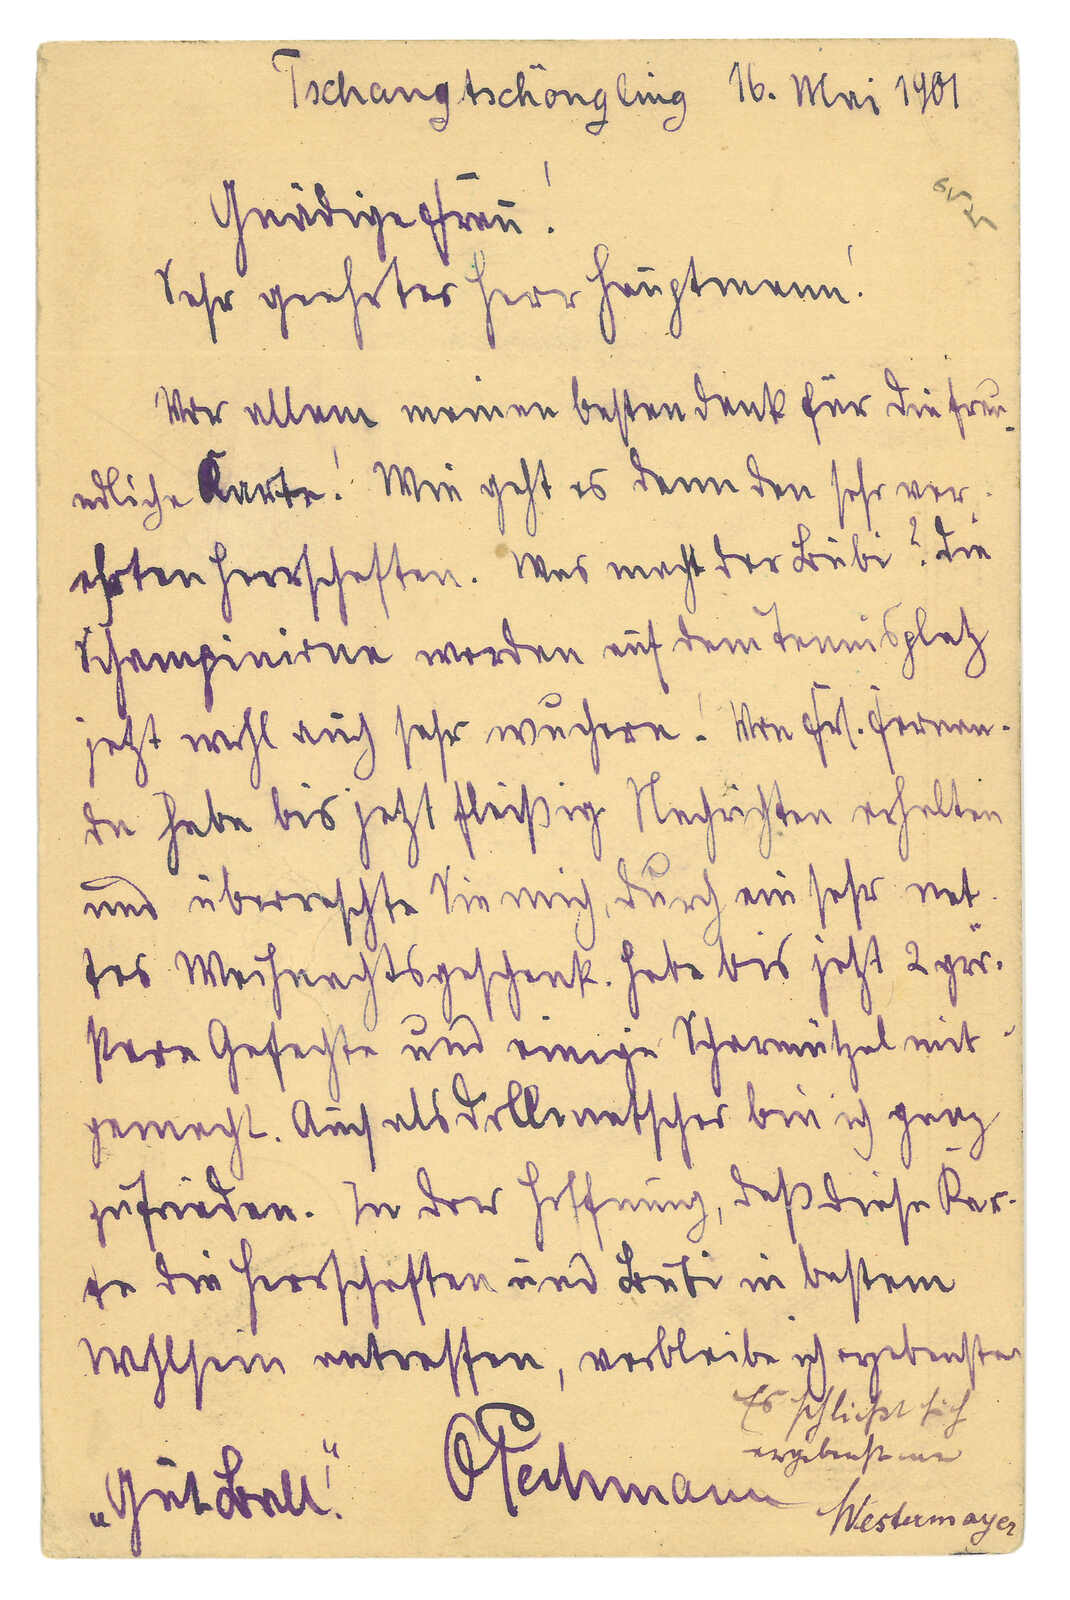 Tschangtschöngling 16. Mai 1901
Gnädige Frau!
Sehr geehrter Herr Hauptmann!
Vor allem meinen besten Dank für die freu-
ndliche Karte! Wie geht es denn den sehr ver-
ehrten Herrschaften. Was macht der Bubi? Die
Schampinione werden auf dem Tennisplatz
jetzt wohl auch sehr wuchern! Von Frl. Fernan-
da habe bis jetzt fleißig Nachrichten erhalten
und überraschte Sie mich, durch ein sehr net-
tes Weihnachtsgeschenk. Habe bis jetzt 2 grö-
ßere Gefechte und einige Scharmützel mit-
gemacht. Auch als Dollmetscher bin ich ganz
zufrieden. In der Hoffnung, daß diese Kar-
te die Herrschaften und Bubi in bestem
Wohlsein antreffen, verbleibe ich ergebenster
Es schließt sich
ergebenst an
OPechmann
Westermayer
„Gut Ball!“